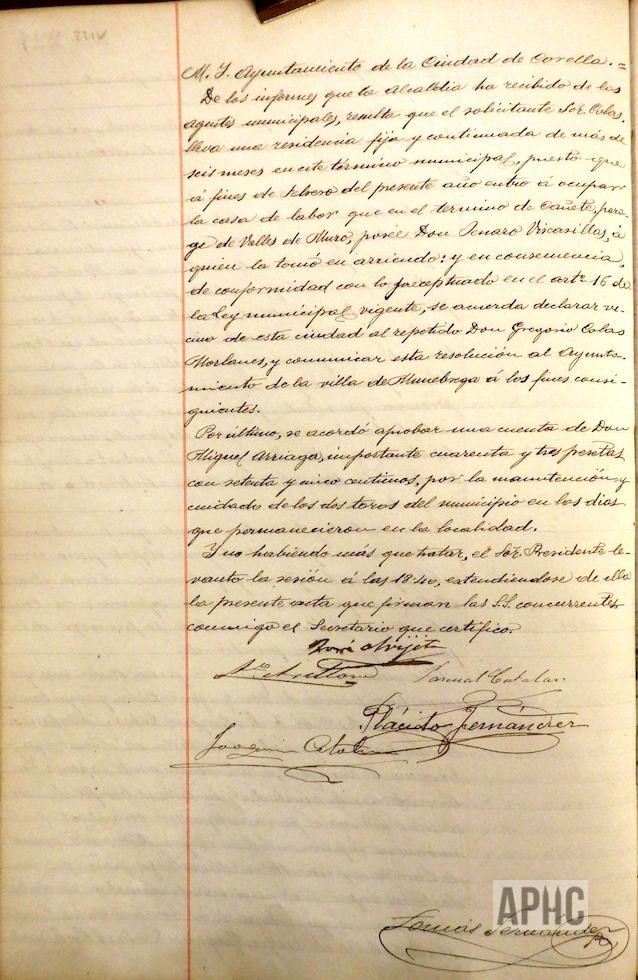 M. I. Ayuntamiento de la Ciudad de Corella.=
De los informes que la Alcaldía ha recibido de los
agentes municipales, resulta que el solicitante Sor. Colas,
lleva una residencia fija y continuada de más de
seis meses en este término municipal, puesto que
á fines de febrero del presente año entró á ocupar
la casa de labor que en el termino de Cañete, para-
ge de Valles de Muro, posée Don Jenaro Viscasillas, á
quien la tomó en arriendo: y en consecuencia,
de conformidad con lo preceptuado en el artº 16 de
la Ley municipal vigente, se acuerda declarar ve-
cino de esta ciudad al repetido Don Gregorio Colas
Morlanes, y comunicar esta resolución al Ayunta-
miento de la villa de Munebrega á los fines consi-
guientes.
Por último, se acordó aprobar una cuenta de Don
Miguel Arriaga, importante cuarenta y tres pesetas
con setenta y cinco centimos, por la manutención y
cuidado de los dos toros del municipio en los dias
que permanecieron en la localidad.
Y no habiendo más que tratar, el Sor. Presidente le-
vantó la sesión á las 18'40, extendiéndose de ella
la presente acta que firman las S.S. concurrentes
conmigo el Secretario que certifico.
José
Pascual Catalan
Plácido Fernández
Joaquin
Tomás Fernández
APHC